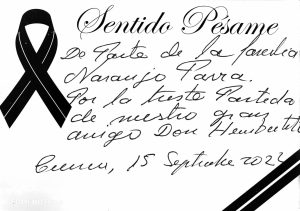 Sentido Pésame
De Parte de la familia
Naranjo Parra.
Por la triste Partida
de nuestro gran
amigo Don Humberto
Cuenca, 15 Septiembre 2022